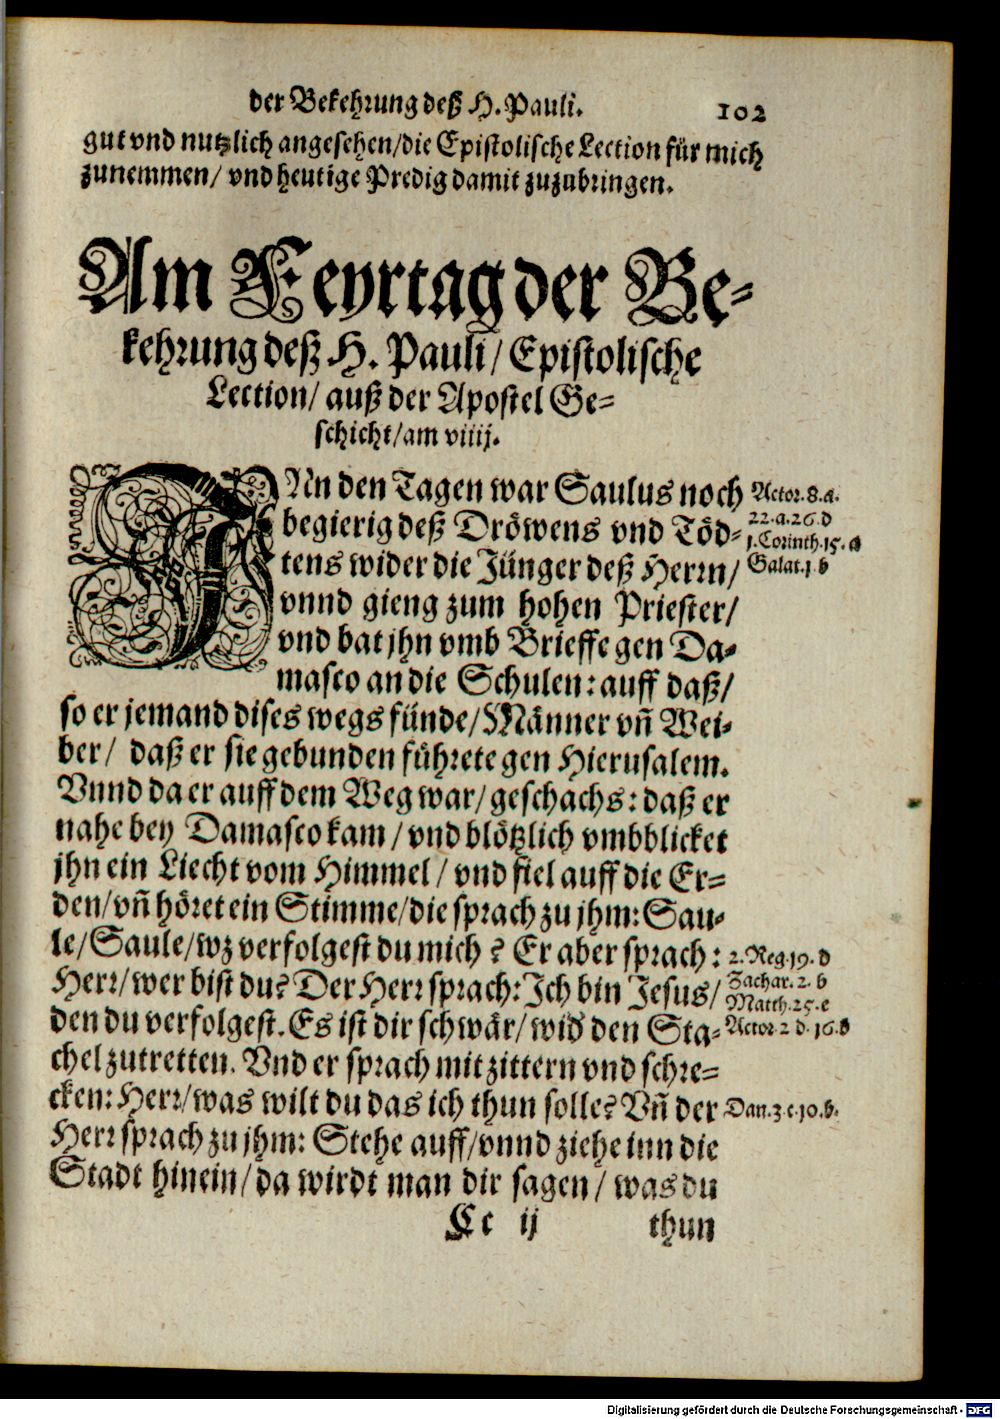 der Bekehrung deß H. Pauli. 102
gut vnd nutzlich angesehen/die Epistolische Lection für mich
zunemmen/ vnd heutige Predig damit zuzubringen.
Am Feyrtag der Be-
kehrung deß H. Pauli/ Epistolische
Lection/ auß der Apostel Ge-
schicht/am viiij.
IN den Tagen war Saulus noch
begierig deß Dröwens vnd Töd-
tens wider die Jünger deß Herrn/
vnnd gieng zum hohen Priester/
vnd bat jhn vmb Brieffe gen Da-
masco an die Schulen: auff daß/
so er jemand dises wegs fünde/Männer vñ Wei-
ber/ daß er sie gebunden führete gen Hierusalem.
Vnnd da er auff dem Weg war/geschachs: daß er
nahe bey Damasco kam/ vnd blötzlich vmbblicket
jhn ein Liecht vom Himmel/ vnd fiel auff die Er-
den/vñ höret ein Stimme/die sprach zu jhm: Sau-
le/Saule/wz verfolgest du mich? Er aber sprach:
Herr/wer bist du? Der Herr sprach: Ich bin Jesus/
den du verfolgest. Es ist dir schwär/wid den Sta-
chel zutretten. Vnd er sprach mit zittern vnd schre-
cken: Herr/was wilt du das ich thun solle? Vñ der
Herr sprach zu jhm: Stehe auff/vnnd ziehe inn die
Stadt hinein/da wirdt man dir sagen/ was du
Cc ij thun
Actor. 8. a.
22. a. 26. d
1. Corinth. 15. a
Galat. 1 b
2. Reg. 19. d
Zachar. 2. b
Matth. 25. e
Actor 2 d. 16. d
Dan. 3 e. 10. b.
Digitalisierung gefördert durch die Deutsche Forschungsgemeinschaft - DFG